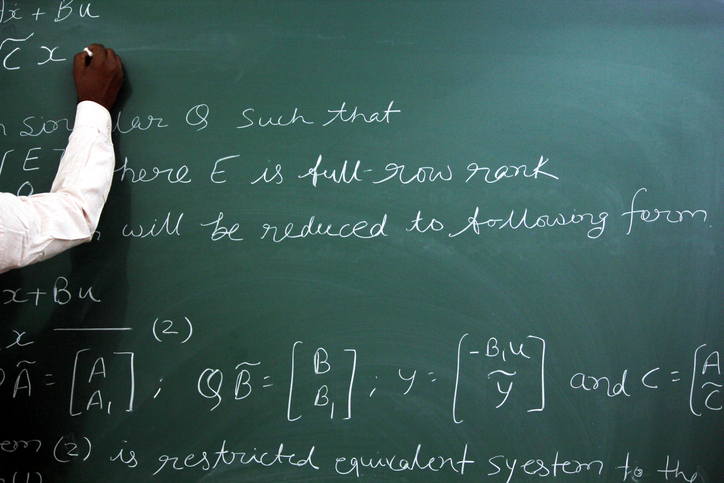 ẋ + Bu
C̃ x
Q such that
[E where E is full-row rank
will be reduced to following form.
x + Bu
x ——— (2)
Ã = [A A₁] ; Q B̃ = [B B₁] ; y = [-B₁u ỹ] and C = [A C̃
(2) is restricted equivalent syestem to the
(1)